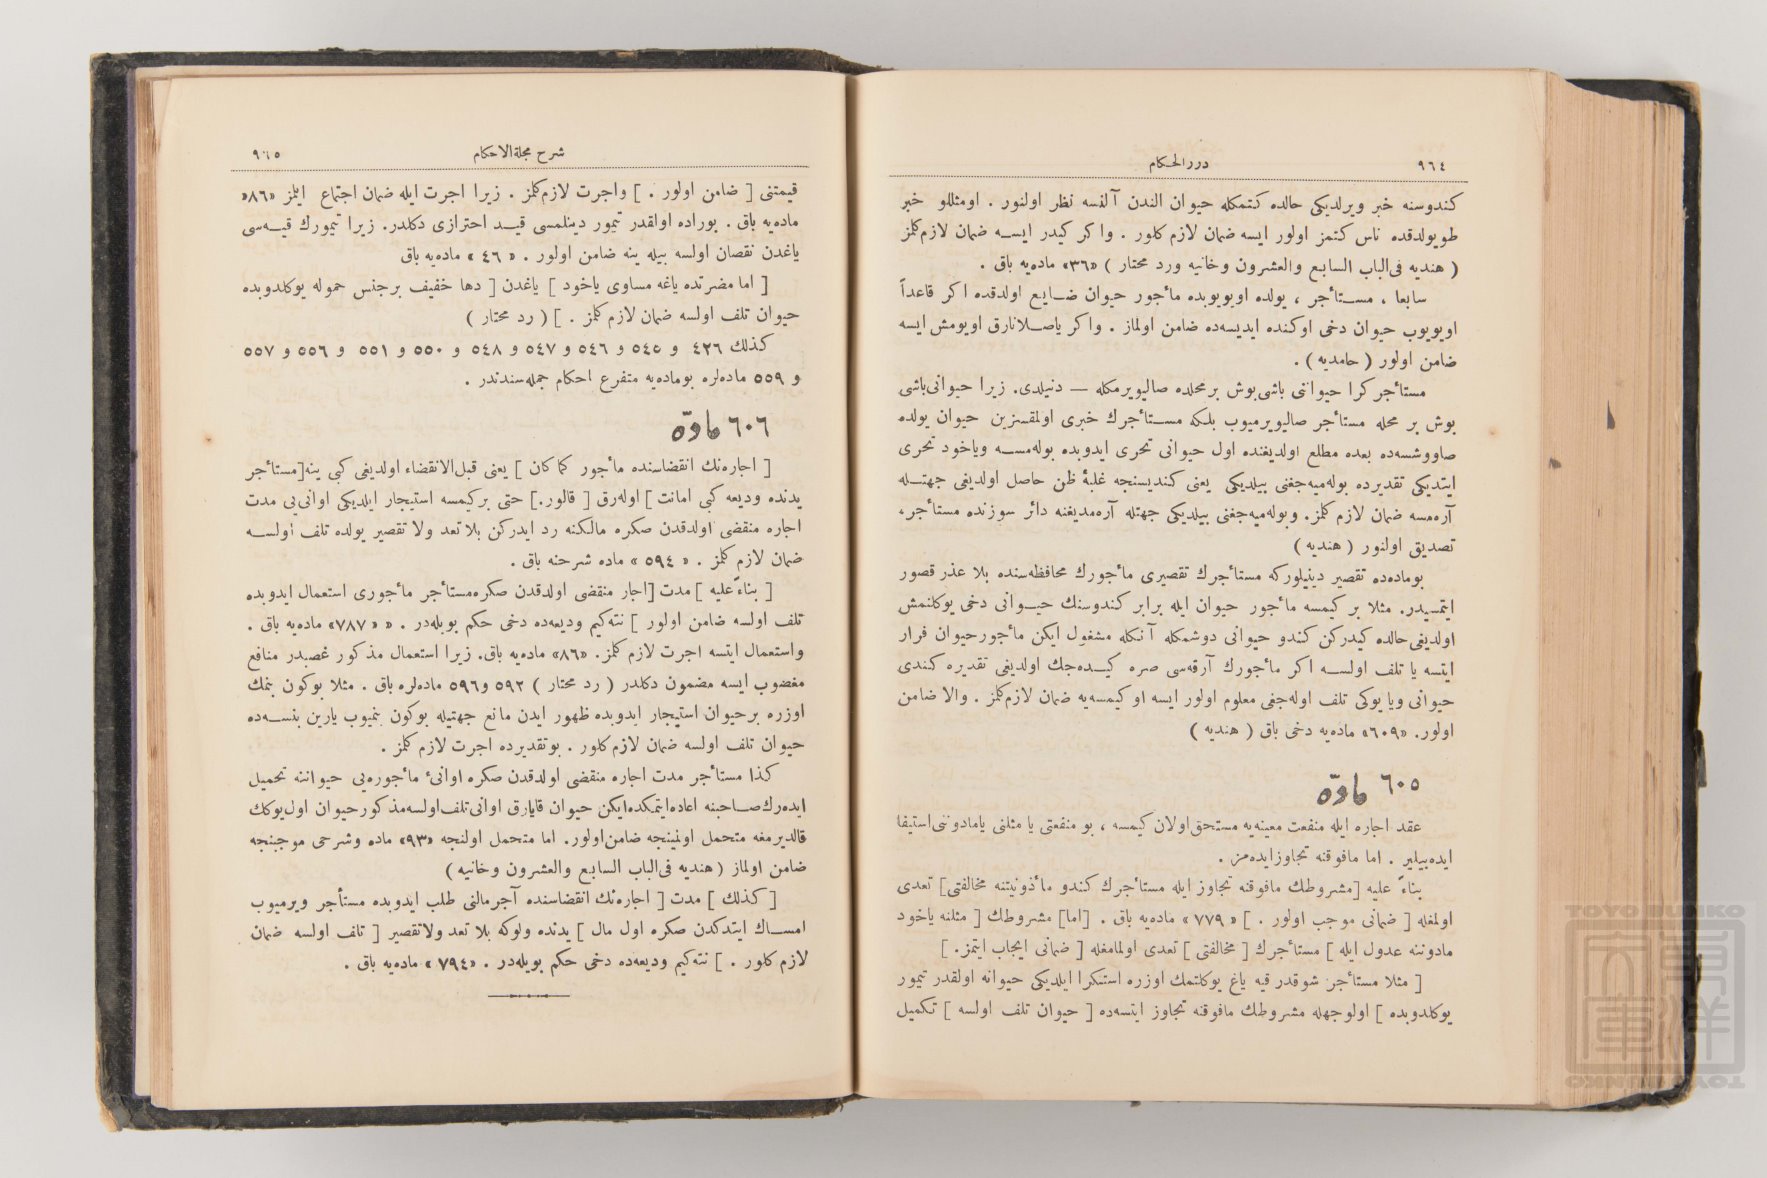 ٩٦٤
دررالحكام
كندوسنه خبر ويرلديكى حالده كتمكله حيوان الندن آلنسه نظر اولنور . اومثللو خبر
طويولدقده ناس كتمز اولور ايسه ضمان لازم كلور . واكر كيدر ايسه ضمان لازم‌كلمز
( هنديه فى‌الباب السابع والعشرون وخانيه ورد محتار ) «٣٦» ماده‌يه باق .
سابعا ، مستأجر ، يولده اويويوبده مأجور حيوان ضايع اولدقده اكر قاعداً
اويويوب حيوان دخى اوكنده ايديسه‌ده ضامن اولماز . واكر ياصلانارق اويومش ايسه
ضامن اولور ( حامديه ) .
مستأجر كرا حيوانى باشى‌بوش برمحلده صاليويرمكله — دنيلدى. زيرا حيوانى‌باشى
بوش بر محله مستأجر صاليويرميوب بلكه مستأجرك خبرى اولمقسزين حيوان يولده
صاووشسه‌ده بعده مطلع اولديغنده اول حيوانى تحرى ايدوبده بوله‌مسه وياخود تحرى
ايتديكى تقديرده بوله‌ميه‌جغنى بيلديكى يعنى كنديسنجه غلبهٔ ظن حاصل اولديغى جهتله
آره‌مسه ضمان لازم كلمز. وبوله‌ميه‌جغنى بيلديكى جهتله آره‌مديغنه دائر سوزنده مستأجر،
تصديق اولنور ( هنديه )
بوماده‌ده تقصير دينيلوركه مستأجرك تقصيرى مأجورك محافظه‌سنده بلا عذر قصور
ايتمسيدر. مثلا بر كيمسه مأجور حيوان ايله برابر كندوسنك حيوانى دخى يوكلنمش
اولديغى‌حالده كيدركن كندو حيوانى دوشمكله آنكله مشغول ايكن مأجورحيوان فرار
ايتسه يا تلف اولسه اكر مأجورك آرقه‌سى صره كيده‌جك اولديغى تقديره كندى
حيوانى ويا يوكى تلف اوله‌جغى معلوم اولور ايسه او كيمسه‌يه ضمان لازم‌كلمز . والا ضامن
اولور. «٦٠٩» ماده‌يه دخى باق ( هنديه )
٦٠٥ مادّه
عقد اجاره ايله منفعت معينه‌يه مستحق‌اولان كيمسه ، بو منفعتى يا مثلنى يامادوننى‌استيفا
ايده‌بيلير . اما مافوقنه تجاوزايده‌مز .
بناءً عليه [مشروطك مافوقنه تجاوز ايله مستأجرك كندو مأذونيتنه مخالفتى] تعدى
اولمغله [ ضمانى موجب اولور . ] « ٧٧٩ » ماده‌يه باق . [اما] مشروطك [ مثلنه ياخود
مادوننه عدول ايله ] مستأجرك [ مخالفتى ] تعدى اولمامغله [ ضمانى ايجاب ايتمز. ]
[ مثلا مستأجر شوقدر قيه ياغ يوكلتمك اوزره استكرا ايلديكى حيوانه اولقدر تيمور
يوكلدوبده ] اولوجهله مشروطك مافوقنه تجاوز ايتسه‌ده [ حيوان تلف اولسه ] تكميل
شرح مجلةالاحكام
٩٦٥
قيمتنى [ ضامن اولور . ] واجرت لازم‌كلمز . زيرا اجرت ايله ضمان اجتماع ايلمز «٨٦»
ماده‌يه باق . بوراده اولقدر تيمور دينلمسى قيد احترازى دكلدر. زيرا تيمورك قيه‌سى
ياغدن نقصان اولسه بيله ينه ضامن اولور . « ٤٦ » ماده‌يه باق
[ اما مضرتده ياغه مساوى ياخود ] ياغدن [ دها خفيف برجنس حموله يوكلدوبده
حيوان تلف اولسه ضمان لازم كلمز . ] ( رد محتار )
كذلك ٤٢٦ و ٥٤٥ و ٥٤٦ و ٥٤٧ و ٥٤٨ و ٥٥٠ و ٥٥١ و ٥٥٦ و ٥٥٧
و ٥٥٩ ماده‌لره بوماده‌يه متفرع احكام جمله‌سندندر .
٦٠٦ مادّه
[ اجاره‌نك انقضاسنده مأجور كماكان ] يعنى قبل‌الانقضاء اولديغى كبى ينه[مستأجر
يدنده وديعه كبى امانت ] اوله‌رق [ قالور.] حتى بركيمسه استيجار ايلديكى اوانى‌يى مدت
اجاره منقضى اولدقدن صكره مالكنه رد ايدركن بلا تعد ولا تقصير يولده تلف اولسه
ضمان لازم كلمز . « ٥٩٤ » ماده شرحنه باق .
[ بناءً‌عليه ] مدت [اجار منقضى اولدقدن صكره‌مستأجر مأجورى استعمال ايدوبده
تلف اولسه ضامن اولور ] نته‌كيم وديعه‌ده دخى حكم بويله‌در . « « ٧٨٧» ماده‌يه باق .
واستعمال ايتسه اجرت لازم كلمز. «٨٦» ماده‌يه باق. زيرا استعمال مذكور غصبدر منافع
مغصوب ايسه مضمون دكلدر ( رد محتار ) ٥٩٢ و٥٩٦ ماده‌لره باق . مثلا بوكون بنمك
اوزره برحيوان استيجار ايدوبده ظهور ايدن مانع جهتيله بوكون بنميوب يارين بنسه‌ده
حيوان تلف اولسه ضمان لازم‌كلور . بوتقديرده اجرت لازم كلمز .
كذا مستأجر مدت اجاره منقضى اولدقدن صكره اوانئ مأجوره‌يى حيواننه تحميل
ايده‌رك‌صاحبنه اعاده‌ايتمكده‌ايكن حيوان قايارق اوانى‌تلف‌اولسه‌مذكورحيوان اول‌يوكك
قالديرمغه متحمل اولمينجه ضامن‌اولور. اما متحمل اولنجه «٩٣» ماده وشرحى موجبنجه
ضامن اولماز ( هنديه فى‌الباب السابع والعشرون وخانيه )
[ كذلك ] مدت [ اجاره‌نك انقضاسنده آجرمالنى طلب ايدوبده مستأجر ويرميوب
امساك ايتدكدن صكره اول مال ] يدنده ولوكه بلا تعد ولاتقصير [ تلف اولسه ضمان
لازم كلور . ] نته‌كيم وديعه‌ده دخى حكم بويله‌در . «٧٩٤» ماده‌يه باق .
TOYO BUNKO
東洋文庫
TOYO BUNKO